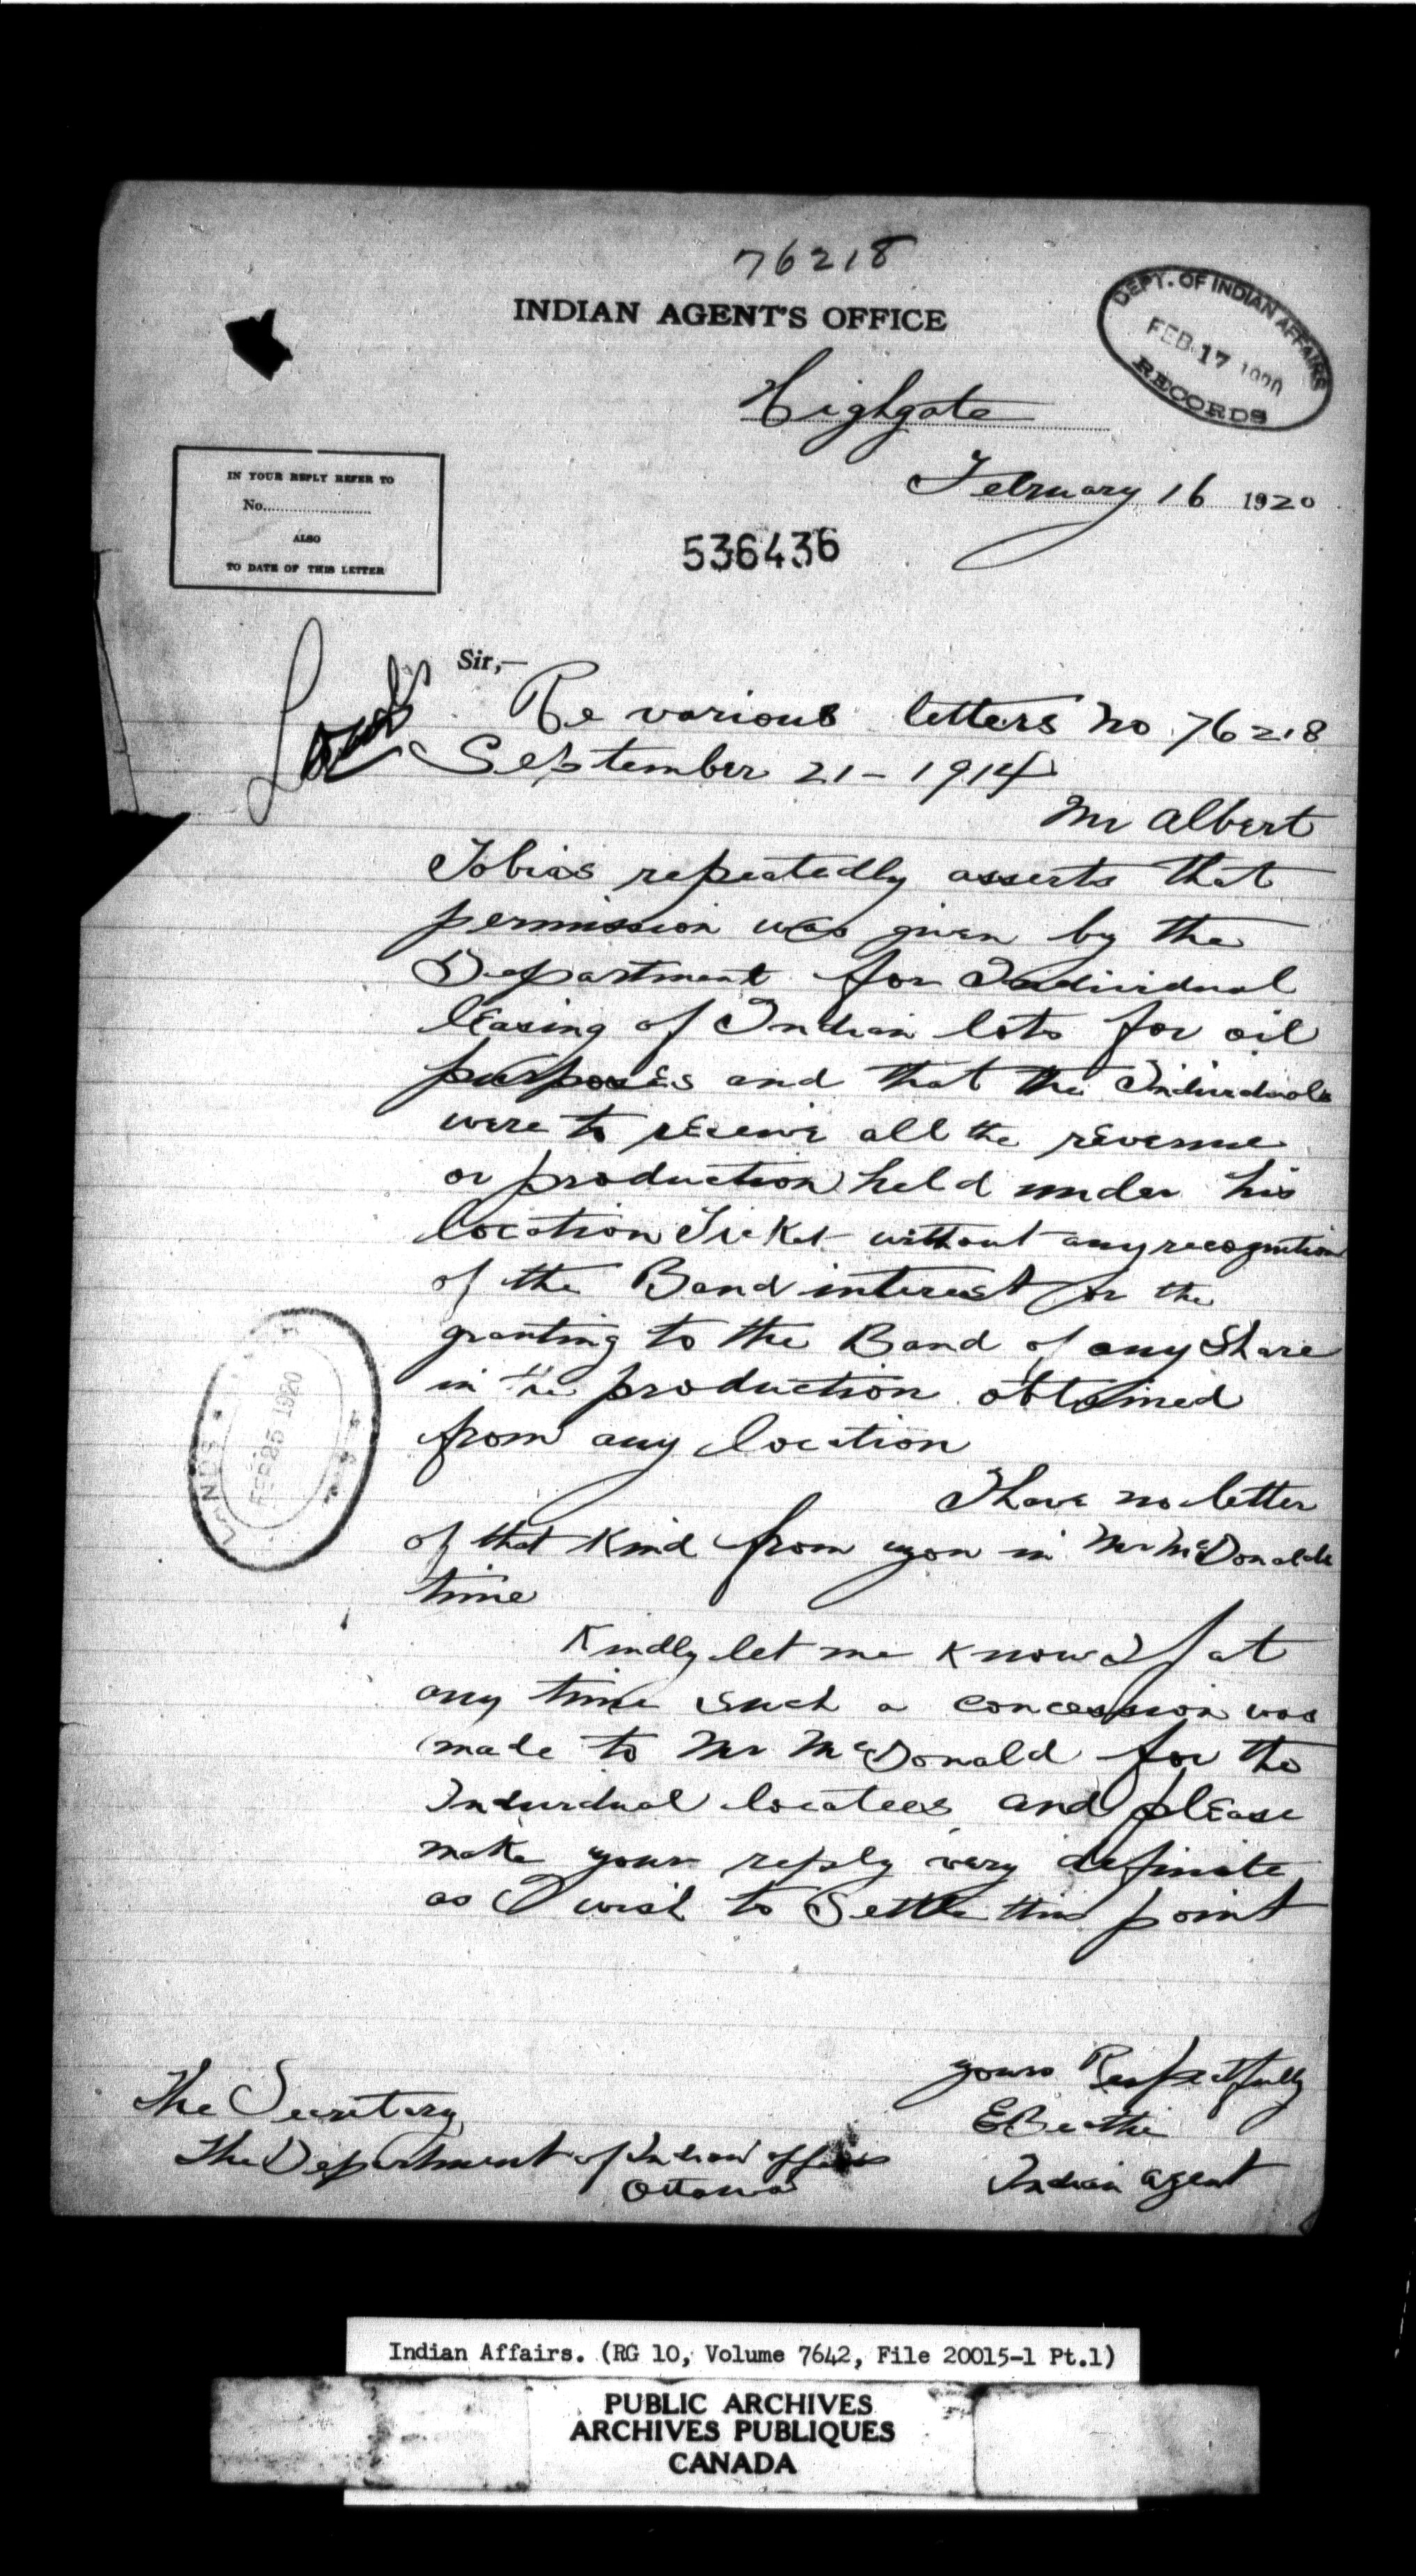 76218
INDIAN AGENT'S OFFICE
DEPT. OF INDIAN AFFAIRS
FEB 17 1920
RECORDS
Highgate
February 16 1920
IN YOUR REPLY REFER TO
No.
ALSO
TO DATE OF THIS LETTER
536436
Sir,—
Re various letters No 76218
September 21 - 1914
Mr Albert
Tobias repeatedly asserts that
permission was given by the
Department for Individual
leasing of Indian lots for oil
purposes and that the Individuals
were to receive all the revenue
or production held under his
location Ticket without any recognition
of the Band interest or the
granting to the Band of any Share
in the production obtained
from any location
I have no letter
of that Kind from you in Mr McDonalds
time
Kindly let me know If at
any time such a concession was
made to Mr McDonald for the
Individual locatees and please
make your reply very definite
as I wish to Settle this point
LANDS
FEB 25 1920
yours Respectfully
E Beattie
Indian agent
The Secretary
The Department of Indian affairs
Ottawa
Indian Affairs. (RG 10, Volume 7642, File 20015-1 Pt.1)
PUBLIC ARCHIVES
ARCHIVES PUBLIQUES
CANADA